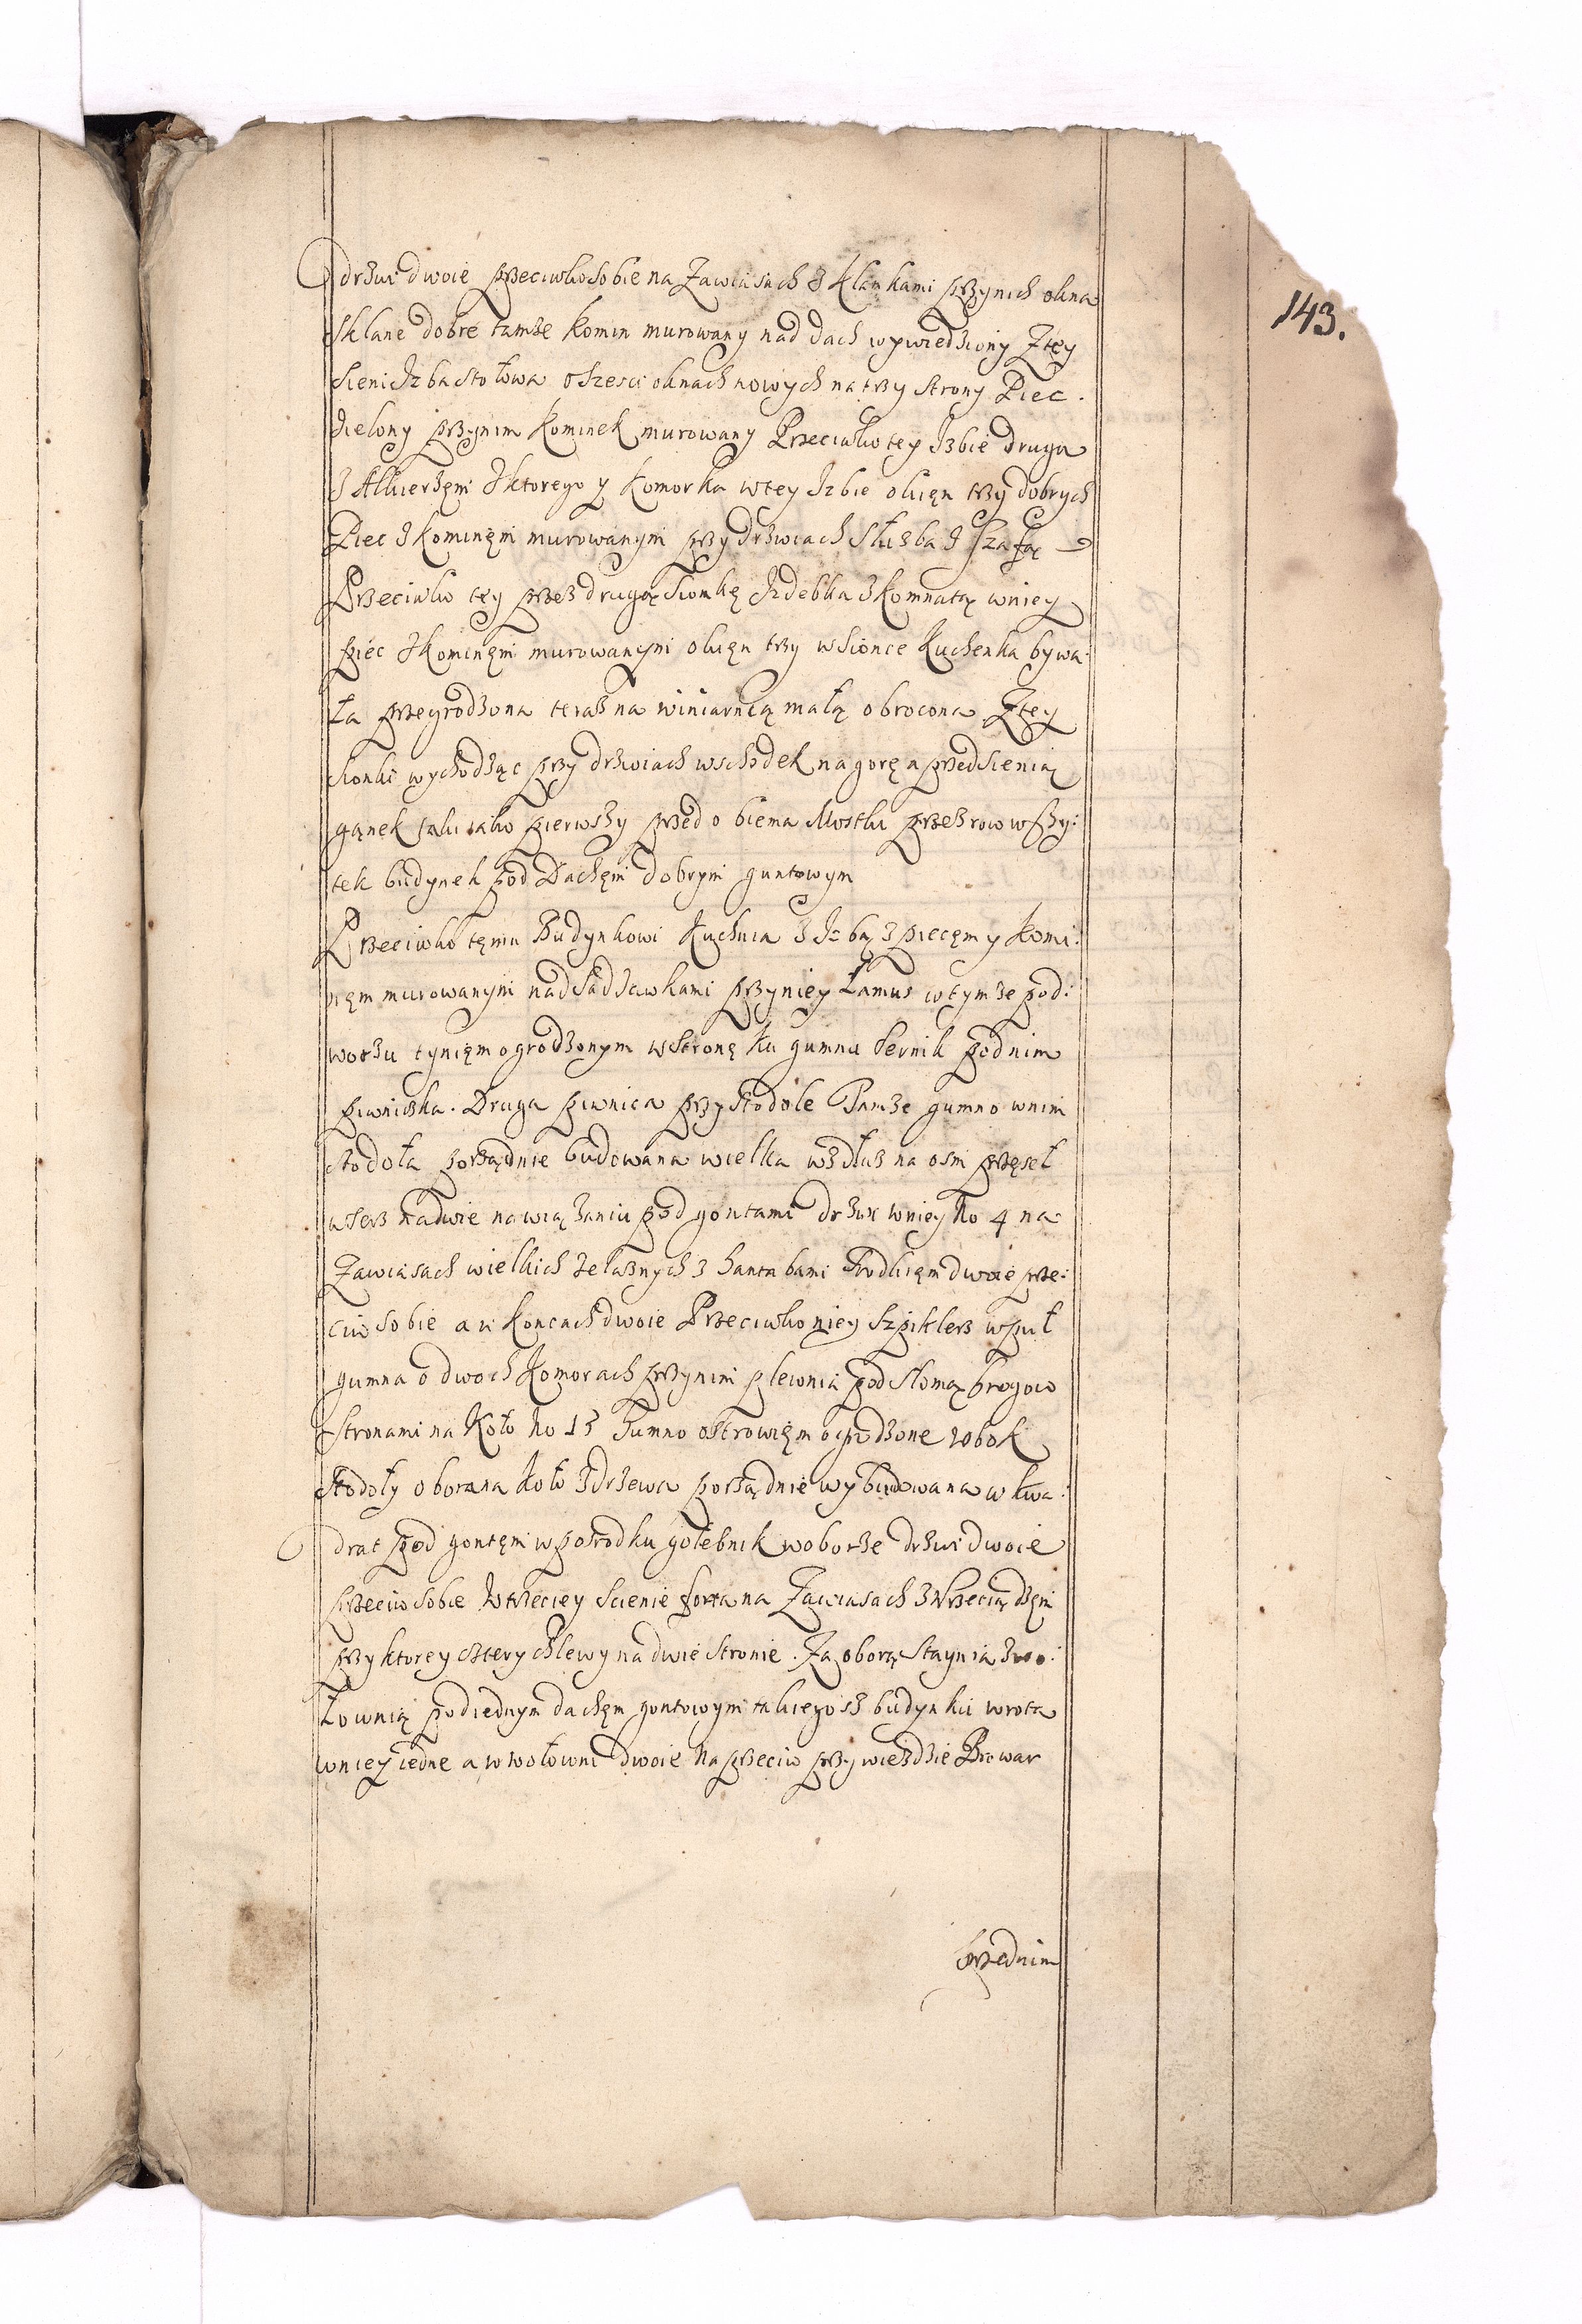 143.
drzwi dwoie przeciwko sobie na Zawiasach z klamkami przy nich okna
sklane dobre tamże komin murowany nad dach wywiedziony Z tey
sieni Izba stołowa o sześci oknach nowych na trzy strony Piec
zielony przy nim Kominek murowany Przeciwko tey Izbie druga
z Alkierzęm z ktorego y komorka w tey Izbie okięn trzy dobrych
Piec z kominęm murowanym przy drzwiach służba z szafą
Przeciwko tey przez drugą sionkę Izdebka z Komnatą w niey
piec z kominęm murowanym okięn trzy w sionce Kuchenka bywa:
ła przegrodzona teraz na winiarnią małą obrocona Z tey
sionki wychodząc przy drzwiach wschodek na gorę a przed sienią
gąnek taki iako pierwszy przed obiema Mostki przez row wszy:
tek budynek pod Dachęm dobrym guntowym
Przeciwko tęmu Budynkowi Kuchnia z Izbą z piecęm y komi:
nęm murowanym nad sadzawkami przy niey Łamus w tymże pod:
worzu tynięm ogrodzonym w stronę ku gumnu sernik pod nim
piwniczka. Druga piwnica przy stodole Tamże gumno w nim
stodoła porządnie budowana wielka wzdłuz na osm przęseł
w serz na dwie na wiązaniu pod gontami drzwi w niey No 4 na
Zawiasach wielkich żelaznych z hantabami srodkięm dwoie prze:
ciw sobie a w koncach dwoie Przeciwko niey Szpiklerz w puł
gumna o dwoch Komorach przy nim plewnia pod słomą brogow
stronami na Koło No 15 Gumno ostrowięm ogrodzone zobok
stodoły obora na koło z drzewa porządnie wybudowana w kwa:
drat pod gontęm w posrodku gołebnik w oborze drzwi dwoie
przeciw sobie w trzeciey scienie forta na Zawiasach z Wrzeciądzem
przy ktorey cztery chlewy na dwie stronie. Za oborą Staynia z wo:
łownią pod iednym dachęm gontowym takiegosz budynku wrota
w niey iedne a w wołowni dwoie Na przeciw przy wiezdzie Browar
przed nim